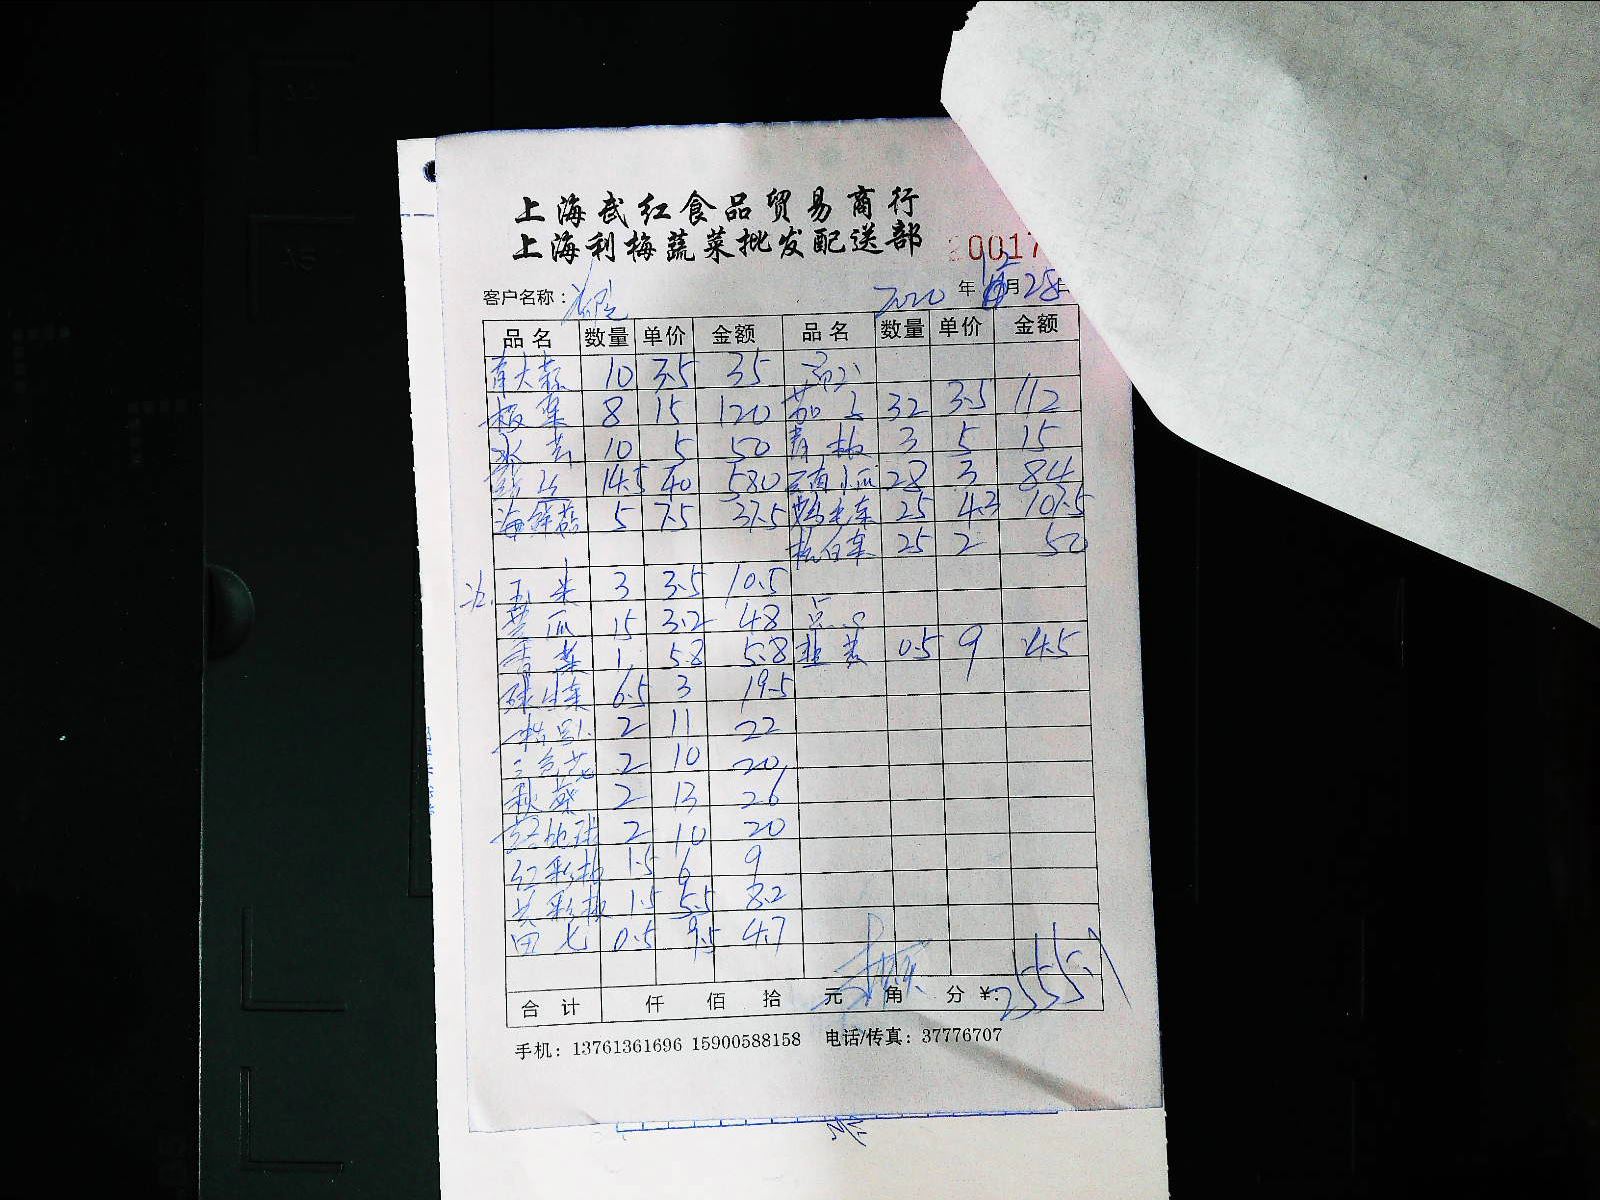 上海武红食品贸易商行
上海利梅蔬菜批发配送部
20017
客户名称:
2020 年 12 月 28
品名 数量 单价 金额 品名 数量 单价 金额
青大蒜 10 3.5 35
板栗 8 15 120 茄子 32 3.5 112
10 5 50 青椒 3 5 15
14.5 40 580 云南小瓜 28 3 84
海鲜菇 5 7.5 37.5 鸡毛菜 25 4.3 107.5
杭白菜 25 2 50
玉米 3 3.5 10.5
黄瓜 15 3.2 48 点心
香菜 1 5.8 5.8 韭黄 0.5 9 4.5
球生菜 6.5 3 19.5
2 11 22
三色花 2 10 20
秋葵 2 13 26
2 10 20
红彩椒 1.5 6 9
黄彩椒 1.5 5.5 8.2
田七 0.5 9.5 4.7
合计 仟 佰 拾 元 角 分 ¥:
手机: 13761361696 15900588158 电话/传真: 37776707